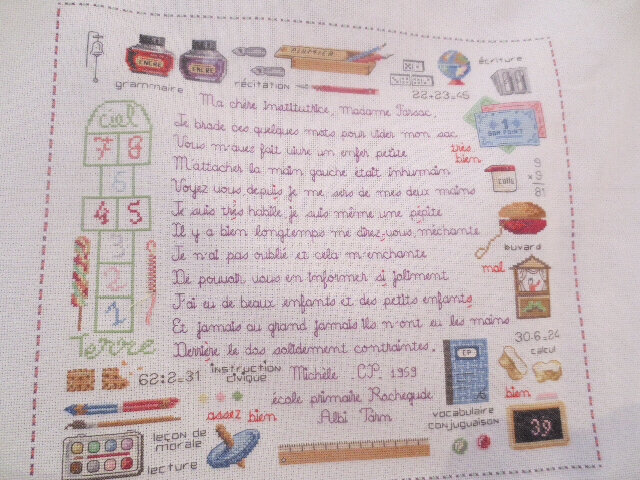 ENCRE
ENCRE
PLUMIER
écriture
grammaire
récitation
22+23=45
Ma chère Institutrice, madame Tarsac,
Je brode ces quelques mots pour vider mon sac
Vous m'avez fait vivre un enfer petite
M'attacher la main gauche était inhumain
Voyez vous depuis je me sers de mes deux mains
Je suis très habile je suis même une pépite
Il y a bien longtemps me direz-vous, méchante
Je n'ai pas oublié et cela m'enchante
De pouvoir vous en informer si joliment
J'ai eu de beaux enfants et des petits enfants
Et jamais au grand jamais ils n'ont eu les mains
Derrière le dos solidement contraintes.
Michèle .CP. 1959
école primaire Rochegude
Albi Tarn
ciel
7 8
6
4 5
3
2
1
Terre
1
BON POINT
très bien
colle
9
×9
81
buvard
mal
30-6=24
calcul
CP
bien
62:2=31
instruction civique
assez bien
leçon de morale
lecture
vocabulaire
conjugaison
39